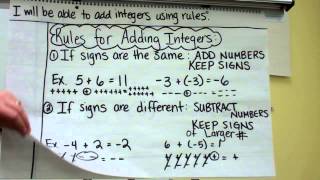 I will be able to add integers using rules.
Rules for Adding Integers:
① If signs are the same: ADD NUMBERS
KEEP SIGNS
Ex. 5 + 6 = 11 -3 + (-3) = -6
+++++ ++++++ --- ---
② If signs are different: SUBTRACT
NUMBERS
KEEP SIGNS
of Larger #
Ex -4 + 2 = -2 6 + (-5) = 1
= -- = +